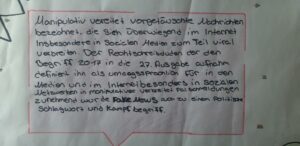 Manipulativ verbreitet vorgetäuschte Nachrichten
bezeichnet, die sich überwiegend im Internet
Insbesondere in Sozialen Medien zum Teil viral
verbreiten Der Rechtschreibduden der den
Begriff 2017 in die 27. Ausgabe aufnahm
definiert ihn als umgangssprachlich für in den
Medien und im Internet besonders in sozialen
Netzwerken in manipulativer verbreitet Falschmeldungen
zunehmend wurde Fake News auch zu einem Politische
Schlagwort und Kampf begriff.